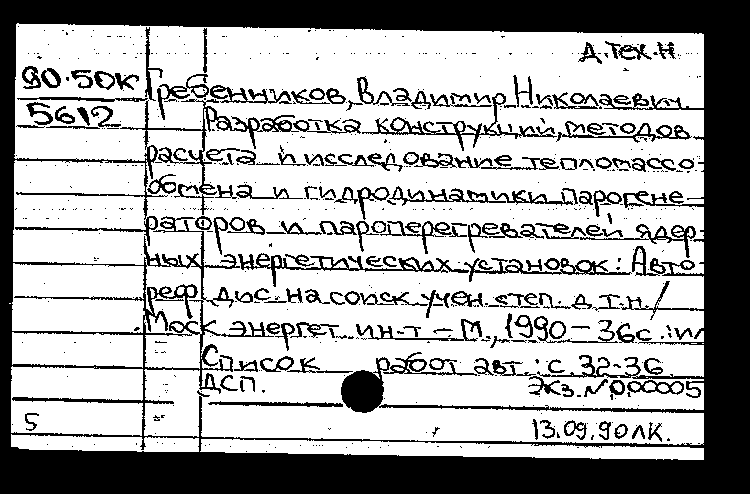 Д.тех.н
90-50К Гребенников, Владимир Николаевич.
5612 Разработка конструкций, методов
расчета и исследование тепломассо-
обмена и гидродинамики парогене-
раторов и пароперегревателей ядер-
ных энергетических установок: Авто-
реф. дис. на соиск учен. степ. д.т.н. /
Моск энергет. ин-т – М., 1990 – 36с.: ил
Список работ авт.: с. 32-36.
ДСП. Экз. N 000005
5 13.09.90 ЛК.